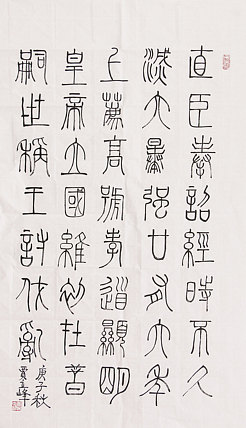 直臣奉詔經時不久
滅六暴強廿有六年
上薦高號孝道顯明
皇帝立國維初在昔
嗣世稱王討伐亂
庚子秋